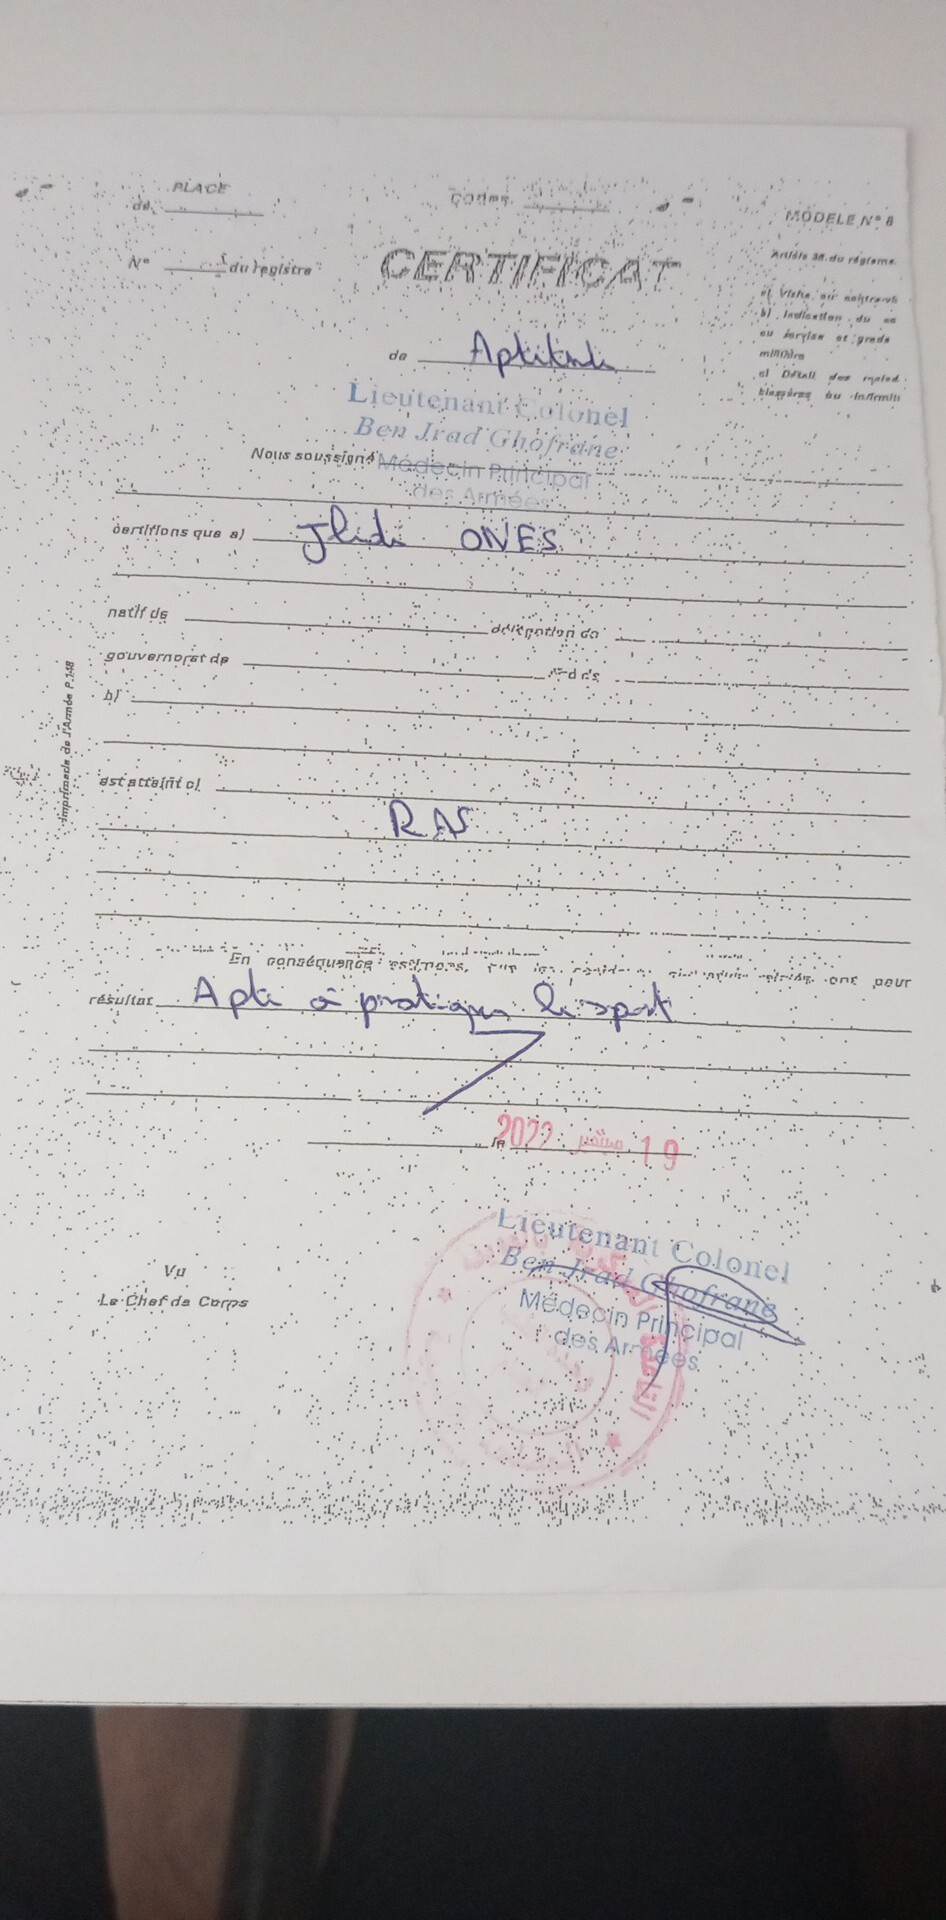 PLACE
de
Corps
MODELE N° 8
N° du registre
CERTIFICAT
Article 38 du règleme
b) Indication du
ou service et grade
militaire
c) Détail des malad
blessures ou infirmit
de Aptitude
Lieutenant Colonel
Ben Jrad Ghofrane
Nous soussigné Médecin Principal
des Armées
certifions que a) Jlidi ONES
natif de délégation de
gouvernorat de
b)
Imprimerie de l'Armée P.148
est atteint c)
RAS
En conséquence estimons, que ont pour
résultat Apte à pratiquer le sport
le 2022 سبتمبر 19
Lieutenant Colonel
Ben Jrad Ghofrane
Médecin Principal
des Armées
Vu
Le Chef de Corps